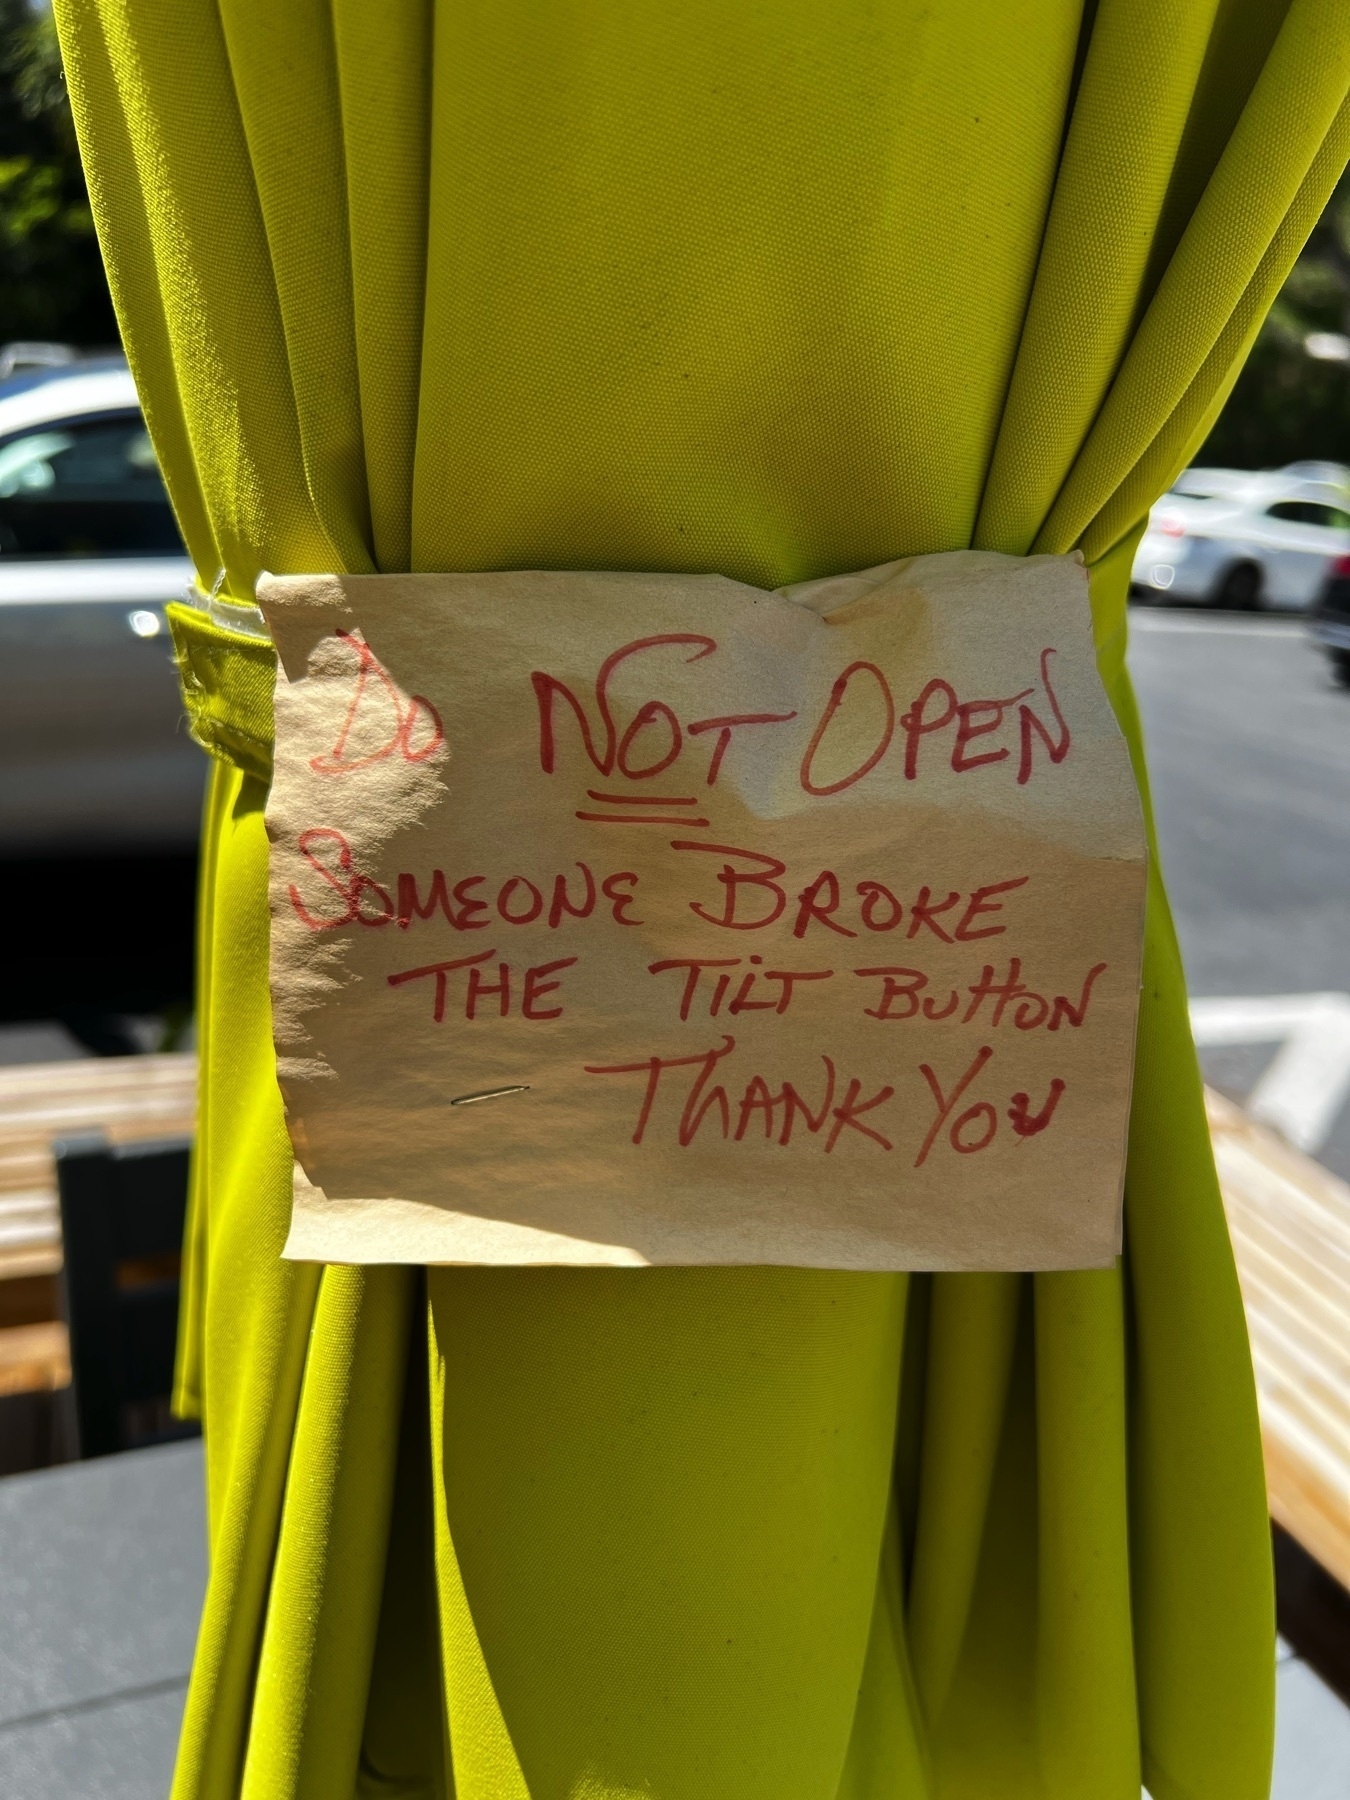 Do NOT OPEN
SOMEONE BROKE
THE TILT BUTTON
THANK YOU